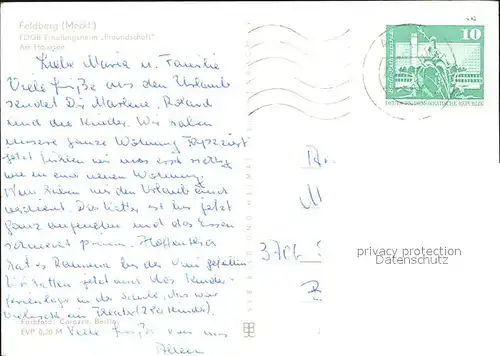 Feldberg (Meckl.)
FDGB-Erholungsheim „Freundschaft"
Am Haussee
Liebe Maria u. Familie
Viele Grüße aus den Urlaub
sendet Dir Marlene, Roland
und die Kinder. Wir haben
unsere ganze Wohnung Tapeziert
jetzt fühlen wir uns erst richtig
wie in einer neuen Wohnung.
Nun haben wir den Urlaub auch
verdient. Das Wetter ist bis jetzt
ganz angenehm und das Essen
schmeckt prima. Hoffentlich
hat es Ramona bei der Omi gefallen
Wir hatten jetzt auch das Kinder-
ferienlager in der Schule, das war
vielleicht ein Theater (220 Kinder).
Viele Grüße von uns
Allen
Farbfoto: Carozzi, Berlin
EVP 0,20 M
VEB BILD UND HEIMAT
10
DEUTSCHE DEMOKRATISCHE REPUBLIK
3706
privacy protection
Datenschutz